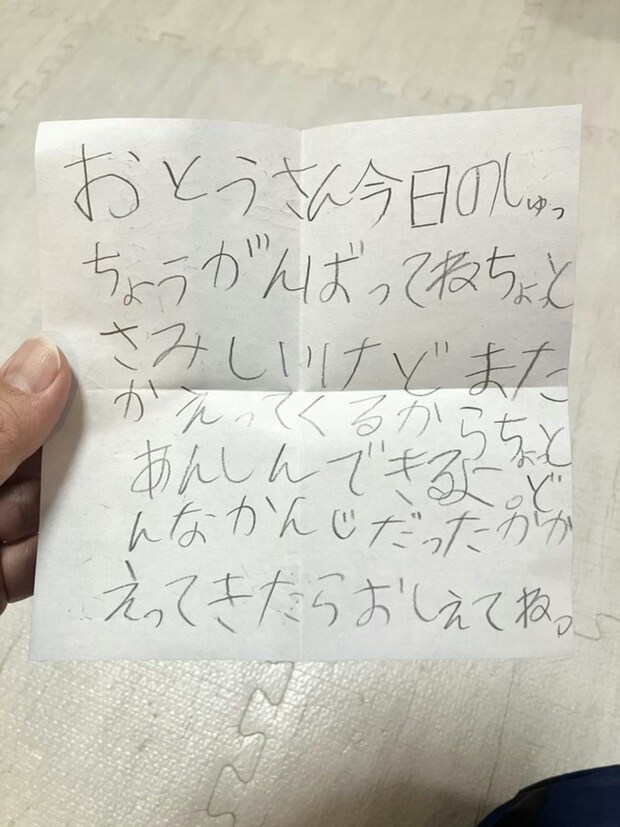 おとうさん今日のしゅっ
ちょうがんばってねちょっと
さみしいけどまた
かえってくるからちょっと
あんしんできるよ。ど
んなかんじだったかか
えってきたらおしえてねっ